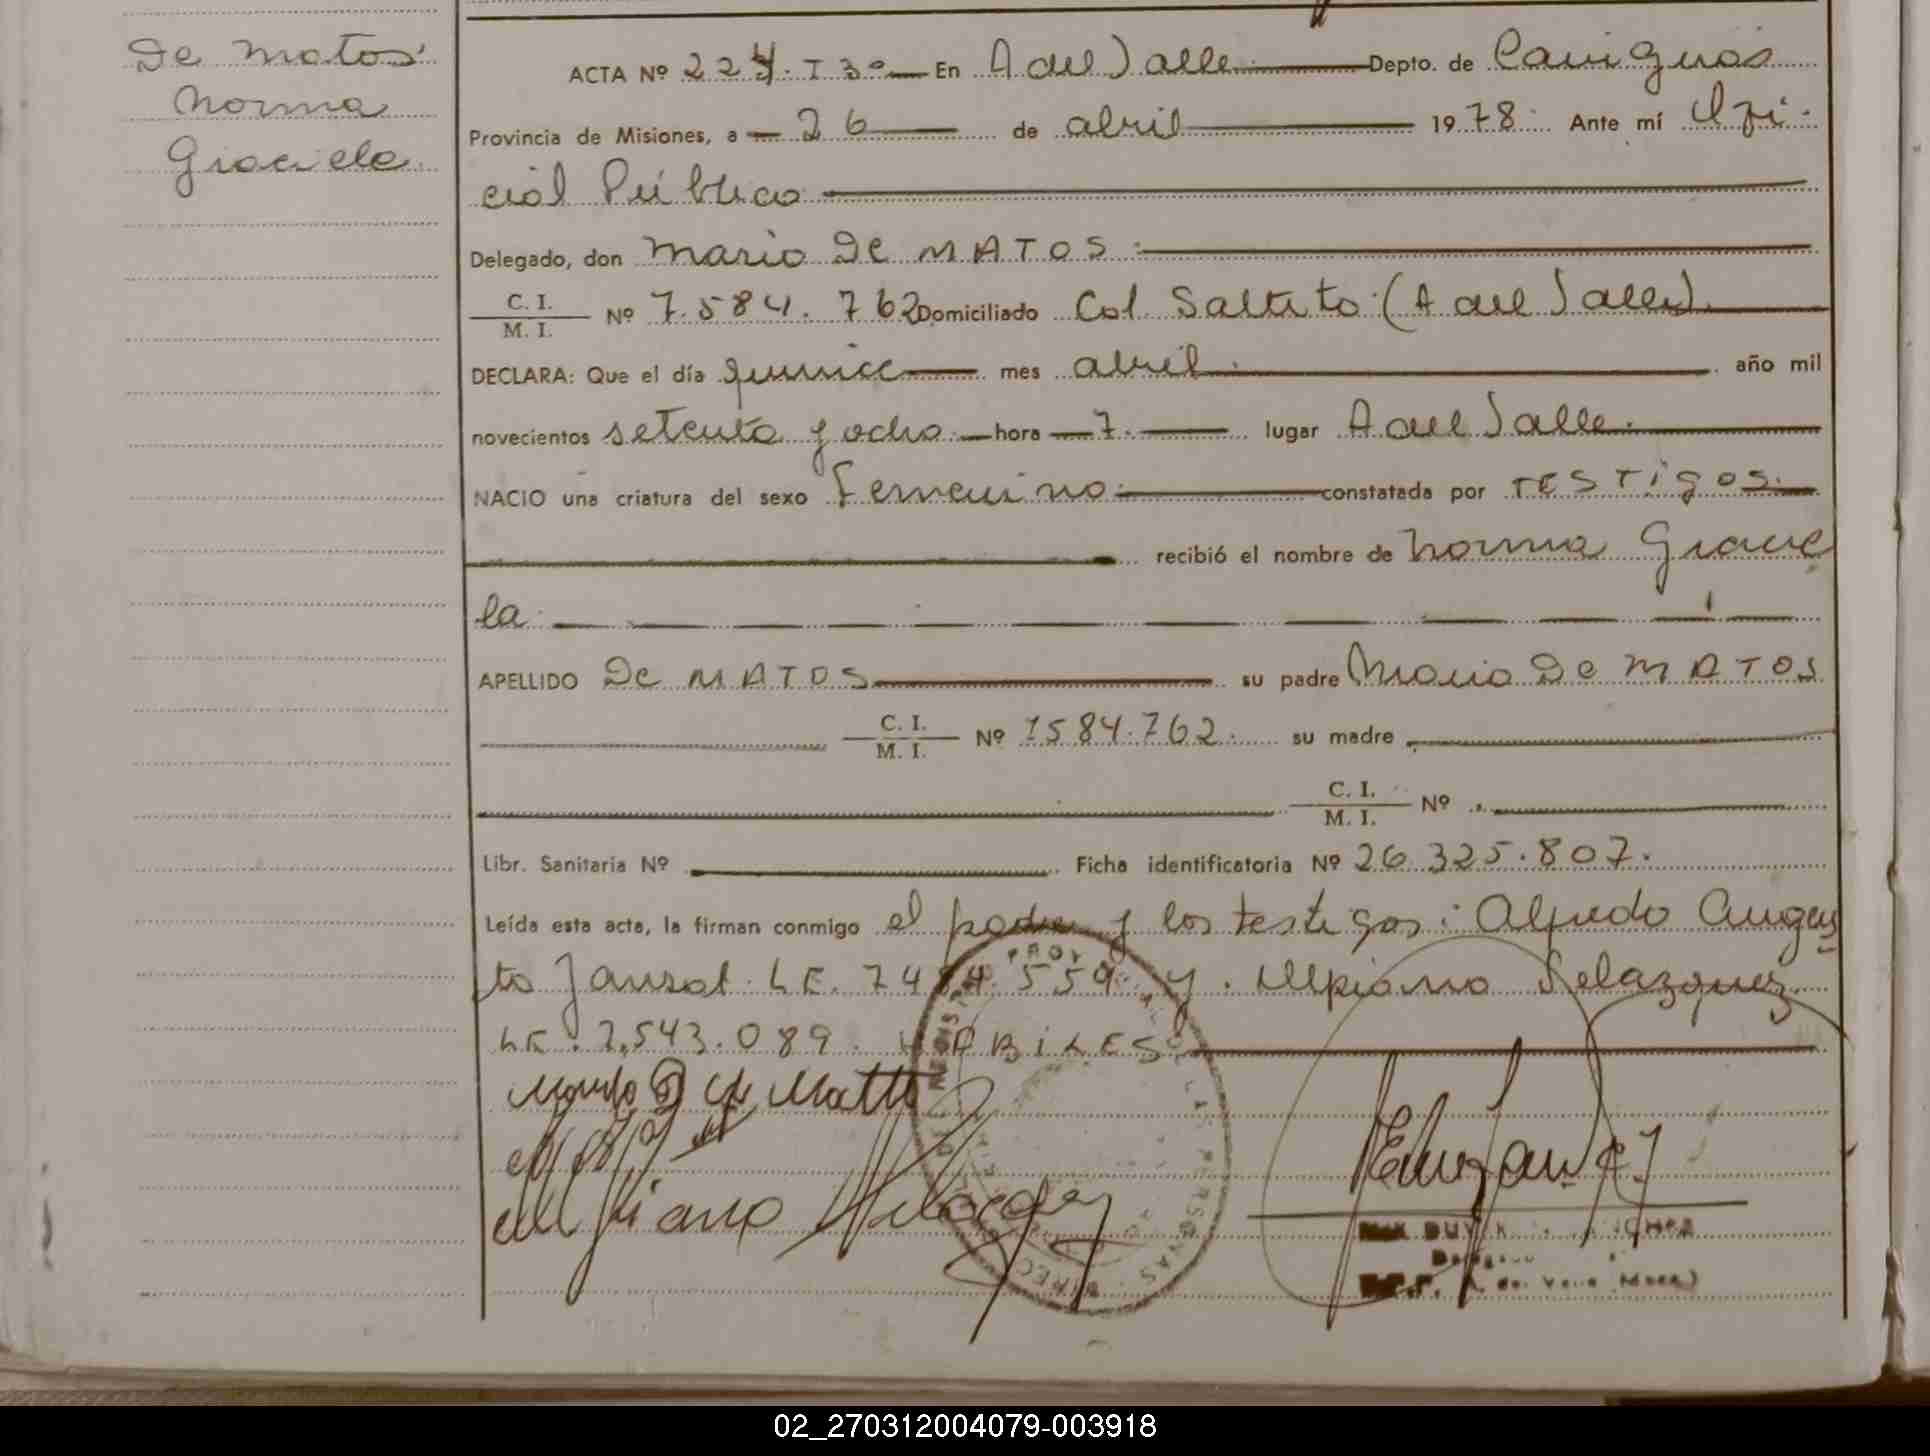 De Matos
Norma
Graciela
ACTA Nº 224. T 3º En A del Valle Depto. de Cainguás
Provincia de Misiones, a 26 de abril 1978. Ante mí Ofi-
cial Público
Delegado, don Mario De MATOS
C. I.
M. I. Nº 7.584.762 Domiciliado Col. Saltito (A del Valle)
DECLARA: Que el día quince mes abril año mil
novecientos setenta y ocho hora 7. lugar A del Valle.
NACIO una criatura del sexo femenino constatada por TESTigos.
recibió el nombre de Norma Gracie
la
APELLIDO De MATOS su padre Mario De MATOS
C. I.
M. I. Nº 7584.762. su madre
C. I.
M. I. Nº
Libr. Sanitaria Nº Ficha identificatoria Nº 26.325.807.
Leída esta acta, la firman conmigo el padre y los testigos: Alfredo Augus
to LE. 7484.559. y. Ulpiano Velazquez
LE. 7.543.089. HABiLES
Ulpiano
REGISTRO PROV. DE LAS PERSONAS
DIREC
02_270312004079-003918